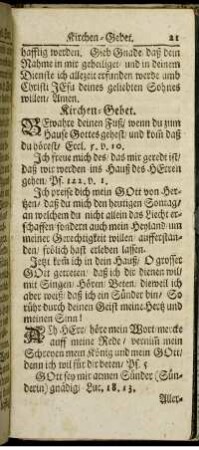 Kirchen-Gebet. 21
hafftig werden. Gieb Gnade daß dein
Nahme in mir geheiliget und in deinem
Dienste ich allezeit erfunden werde umb
Christi JEsu deines geliebten Sohnes
willen/ Amen.
Kirchen-Gebet.
BEwahre deinen Fuß/ wenn du zum
Hause Gottes gehest/ und kom̃ daß
du hörest/ Eccl. 5. v. 10.
Ich freue mich des/ das mir geredt ist/
daß wir werden ins Hauß des HErren
gehen/ Ps. 122. v. 1.
Ich preise dich mein GOtt von Her-
tzen/ daß du mich den heutigen Sontag/
an welchem du nicht allein das Liecht er-
schaffen sondern auch mein Heyland um
meiner Gerechtigkeit willen aufferstan-
den/ frölich hast erleben lassen.
Jetzt kom̃ ich in dein Hauß/ O grosser
GOtt getreten/ daß ich dir dienen wil/
mit Singen/ Hören/ Beten/ dieweil ich
aber weiß/ daß ich ein Sünder bin/ So
rühr durch deinen Geist mein Hertz und
meinen Sinn!
ACh HErr/ höre mein Wort/ mercke
auff meine Rede/ vernim̃ mein
Schreyen mein König und mein GOtt/
denn ich wil für dir beten/ Ps. 5
GOtt sey mir armen Sünder (Sün-
derin) gnädig/ Luc. 18. 13.
Aller-